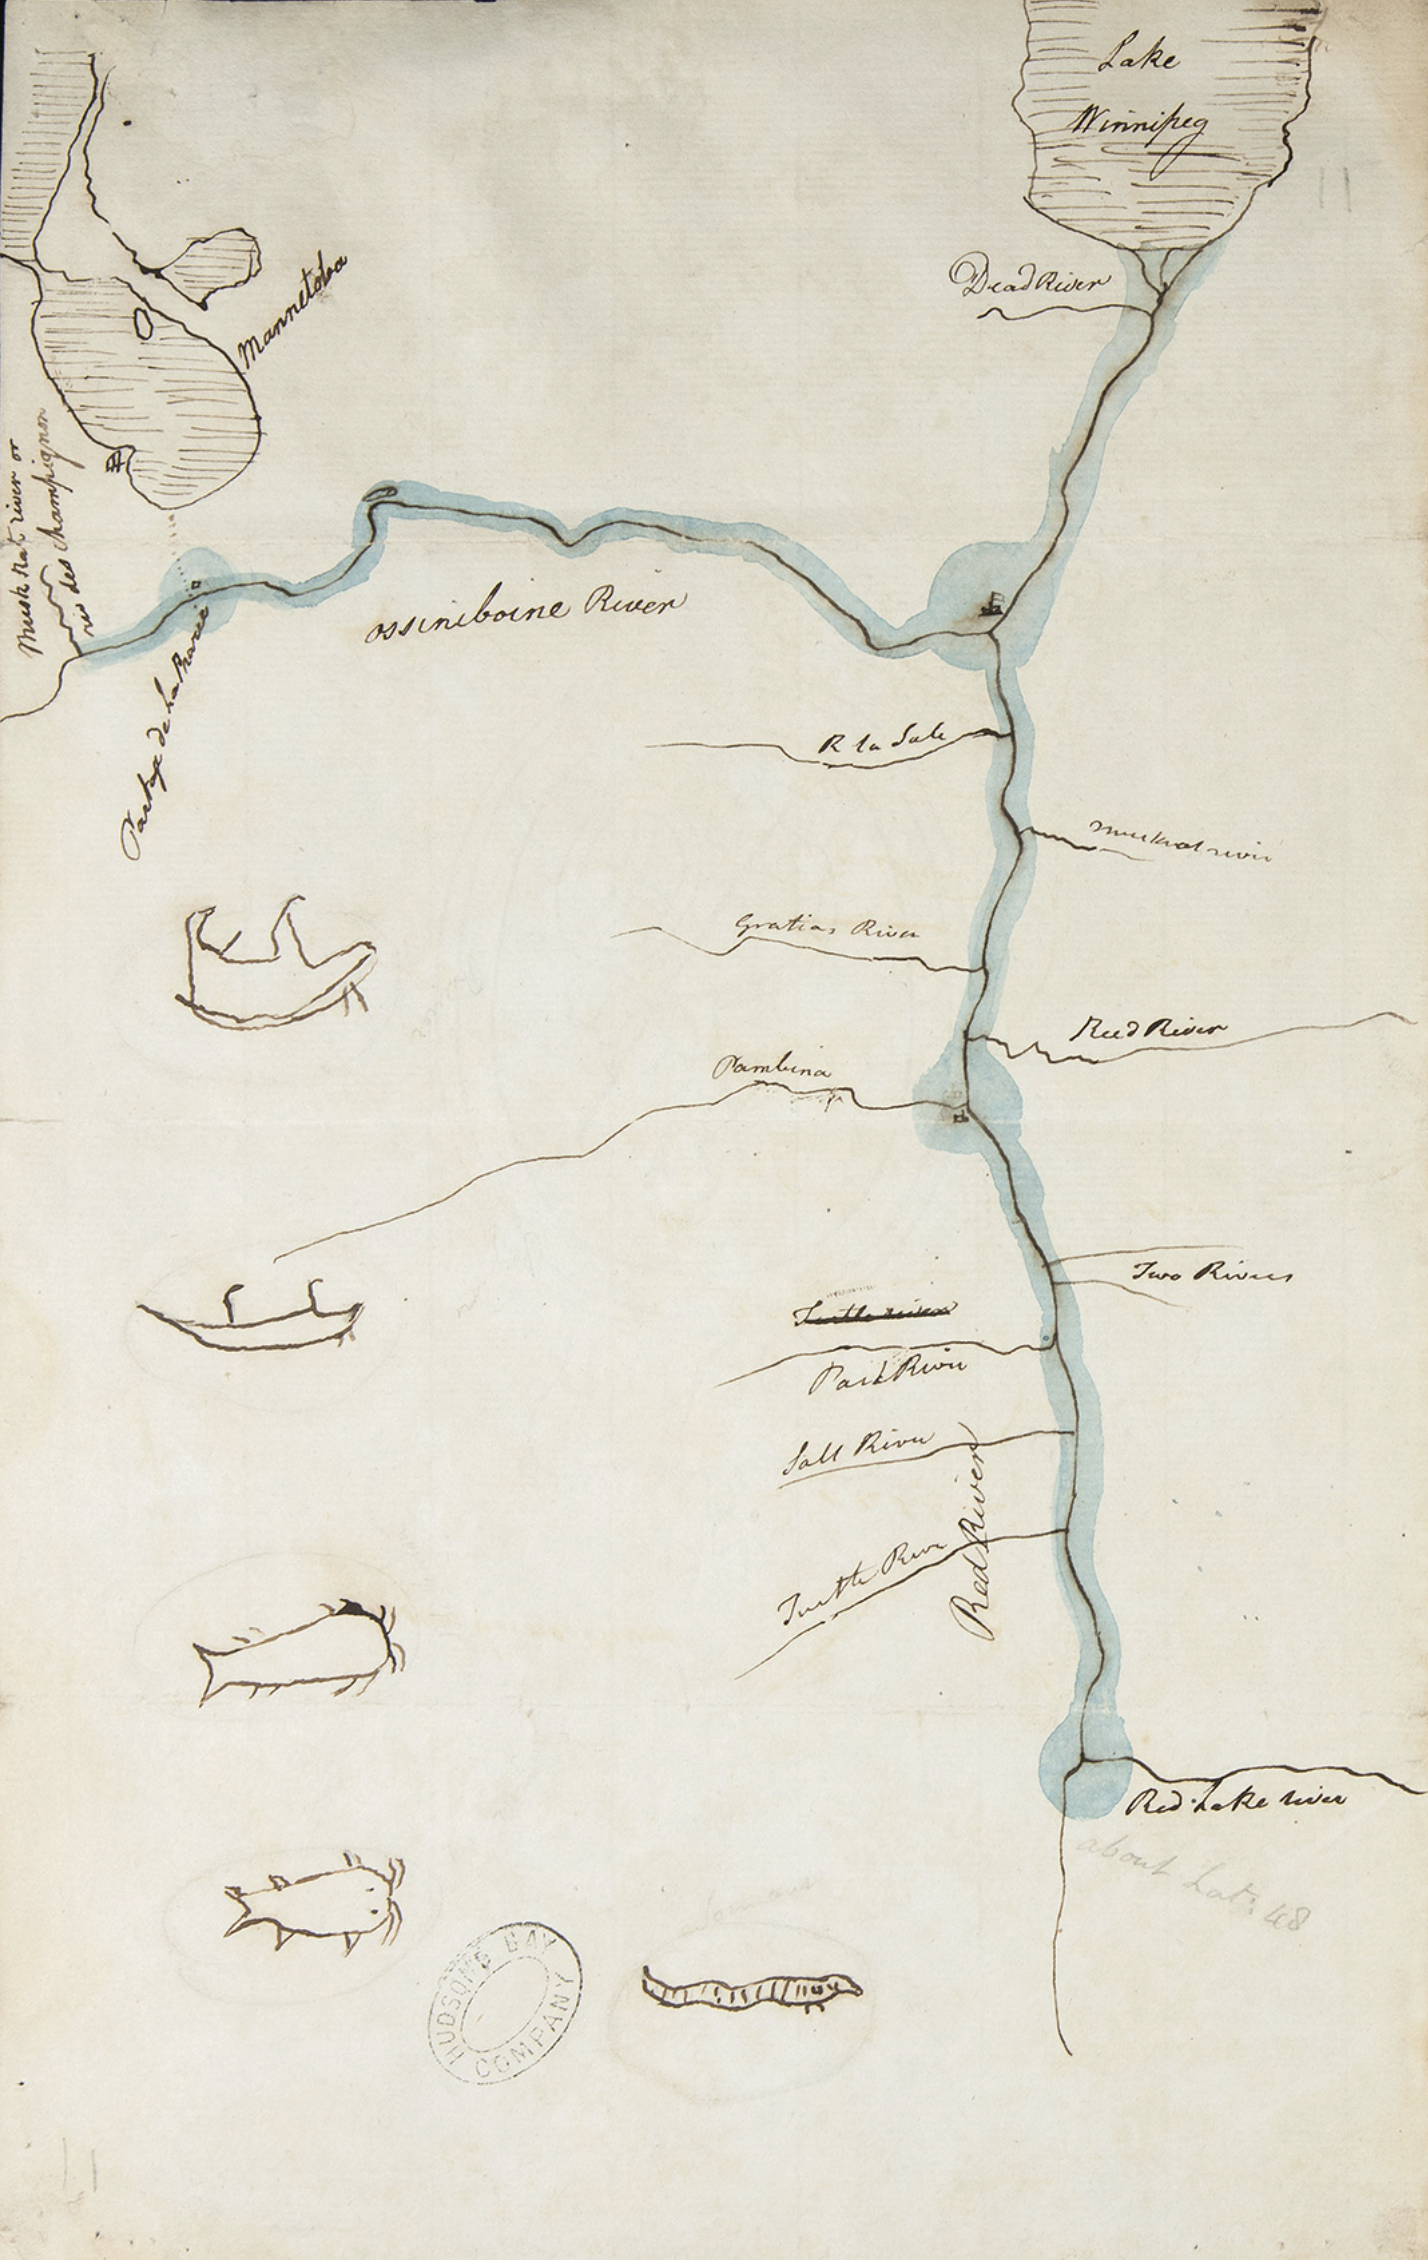 Lake
Winnipeg
11
Dead River
Mannetoba
Musk Rat river or
riv des champignon
ossiniboine River
Portage de La Prarie
R la Sale
muskrat river
Gratias River
Reed River
Pambina
Two Rivers
Turtle river
Park River
Salt River
Turtle River
Red River
Red Lake river
about Lat: 48
HUDSONS BAY
COMPANY
11